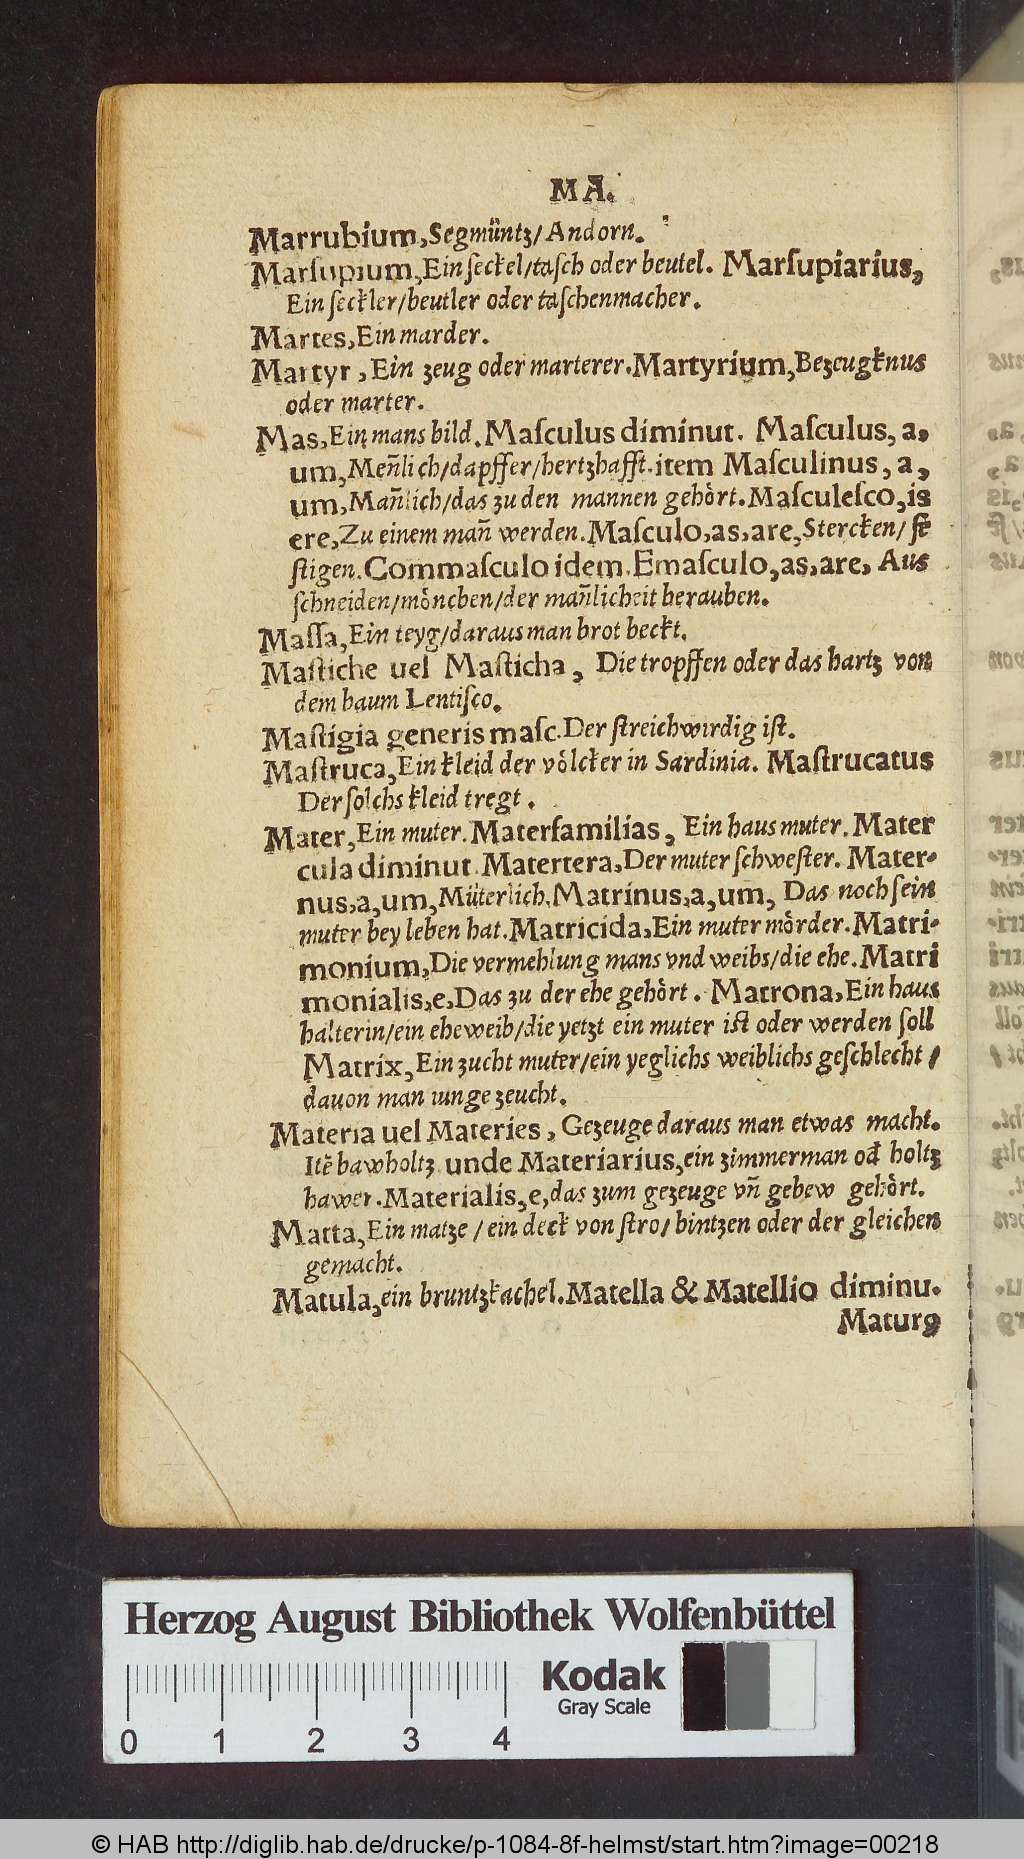 MA.
Marrubium, Segmüntz/ Andorn.
Marſupium, Ein ſeckel/taſch oder beutel. Marſupiarius,
Ein ſeckler/beutler oder taſchenmacher.
Martes, Ein marder.
Martyr, Ein zeug oder marterer. Martyrium, Bezeugknus
oder marter.
Mas, Ein mans bild. Maſculus diminut. Maſculus, a,
um, Men̄lich/dapffer/hertzhafft. item Maſculinus, a,
um, Man̄lich/das zu den mannen gehoͤrt. Maſculeſco, is
ere, Zu einem man̄ werden. Maſculo, as, are, Stercken/ fe
ſtigen. Commaſculo idem. Emaſculo, as, are, Aus
ſchneiden/moͤnchen/der man̄licheit berauben.
Maſſa, Ein teyg/daraus man brot beckt.
Maſtiche uel Maſticha, Die tropffen oder das hartz von
dem baum Lentiſco.
Maſtigia generis maſc. Der ſtreichwirdig iſt.
Maſtruca, Ein kleid der voͤlcker in Sardinia. Maſtrucatus
Der ſolchs kleid tregt.
Mater, Ein muter. Materfamilias, Ein haus muter. Mater
cula diminut. Matertera, Der muter ſchweſter. Mater-
nus, a, um, Müterlich. Matrinus, a, um, Das noch ſein
muter bey leben hat. Matricida, Ein muter moͤrder. Matri-
monium, Die vermehlung mans vnd weibs/die ehe. Matri
monialis, e, Das zu der ehe gehoͤrt. Matrona, Ein haus
halterin/ein eheweib/die yetzt ein muter iſt oder werden ſoll
Matrix, Ein zucht muter/ein yeglichs weiblichs geſchlecht/
dauon man iunge zeucht.
Materia uel Materies, Gezeuge daraus man etwas macht.
Itē bawholtz unde Materiarius, ein zimmerman od̄ holtz
hawer. Materialis, e, das zum gezeuge vn̄ gebew gehoͤrt.
Matta, Ein matze/ ein deck von ſtro/ bintzen oder der gleichen
gemacht.
Matula, ein bruntzkachel. Matella & Matellio diminu.
Maturg
Herzog August Bibliothek Wolfenbüttel
Kodak
Gray Scale
0 1 2 3 4
© HAB http://diglib.hab.de/drucke/p-1084-8f-helmst/start.htm?image=00218